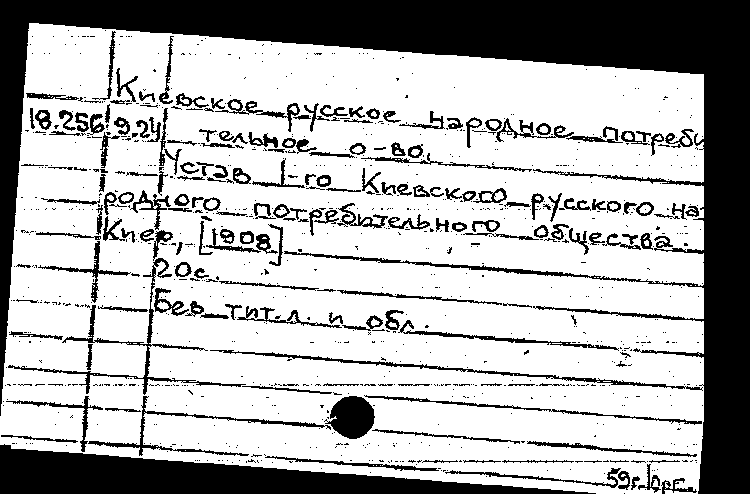 Киевское русское народное потреби
18.256 9.24 тельное о-во.
Устав 1-го Киевского русского на
родного потребительного общества.
Киев, [1908].
20с.
Без тит.л. и обл.
59г.